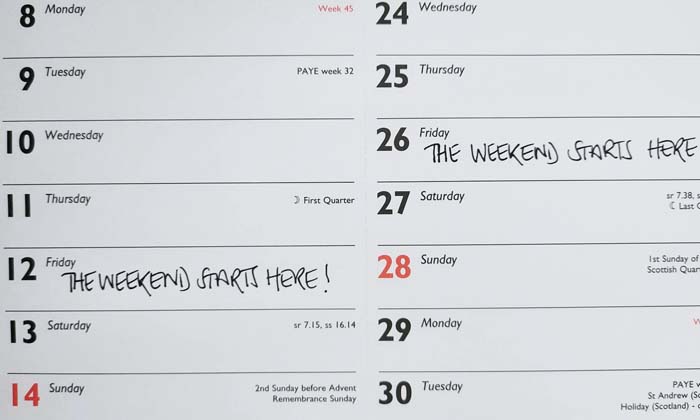 8 Monday Week 45
9 Tuesday PAYE week 32
10 Wednesday
11 Thursday ☽ First Quarter
12 Friday
THE WEEKEND STARTS HERE!
13 Saturday sr 7.15, ss 16.14
14 Sunday 2nd Sunday before Advent
Remembrance Sunday
24 Wednesday
25 Thursday
26 Friday
THE WEEKEND STARTS HERE
27 Saturday sr 7.38, s
☾ Last
28 Sunday 1st Sunday of
Scottish Quar
29 Monday
30 Tuesday PAYE
St Andrew (S
Holiday (Scotland) -